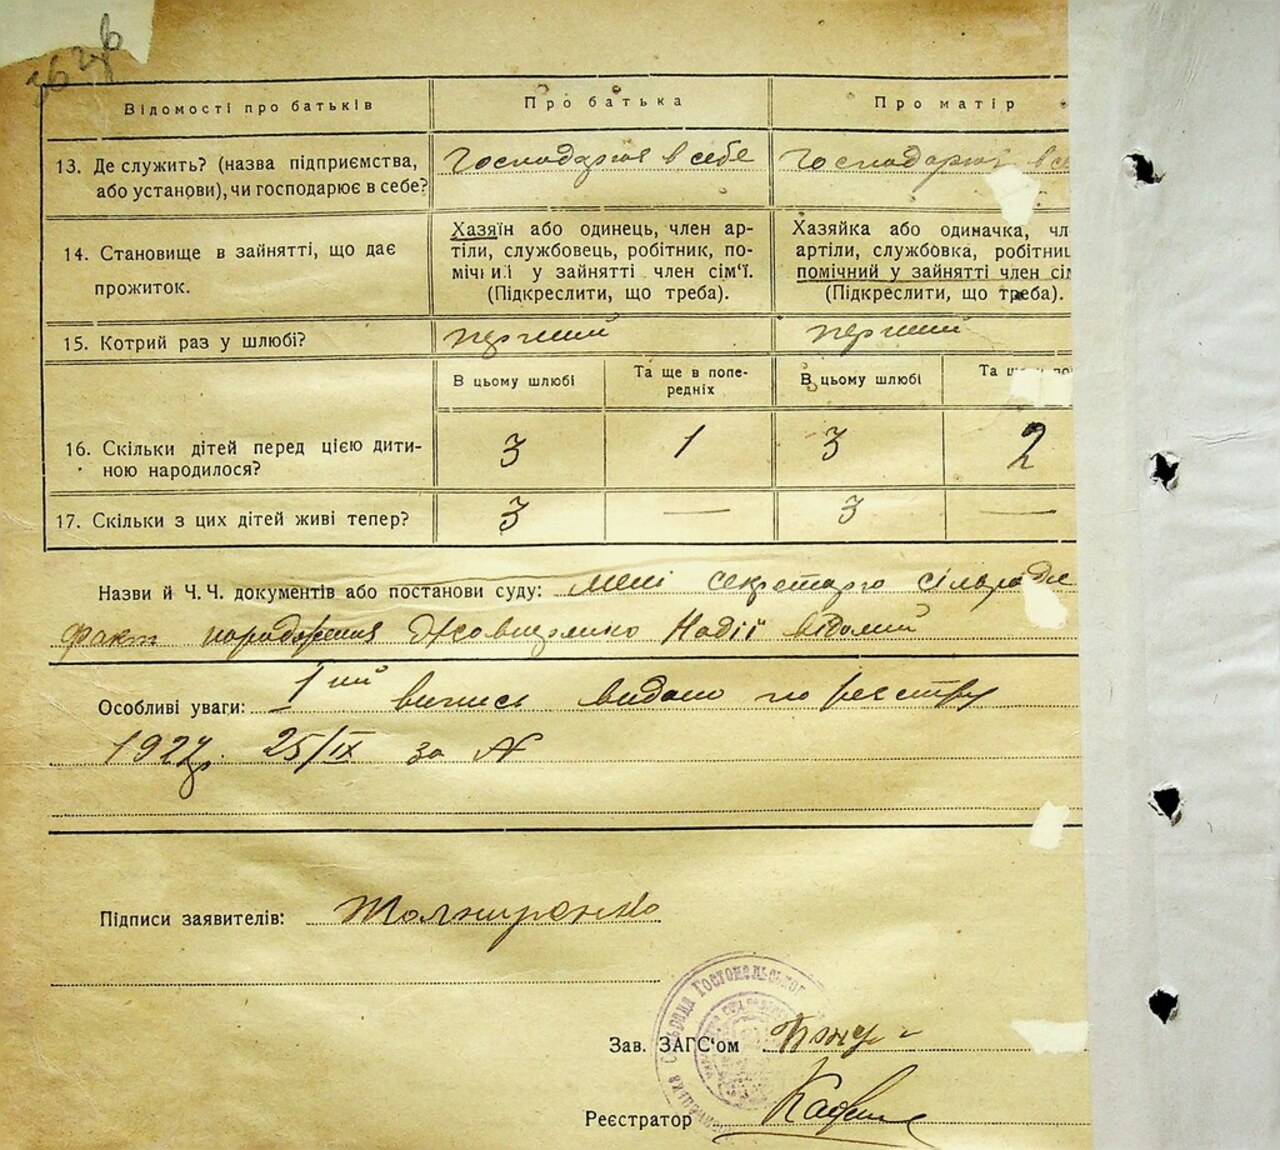 Відомості про батьків
Про батька
Про матір
13. Де служить? (назва підприємства, або установи), чи господарює в себе?
Господарює в себе
Господарює в
14. Становище в зайнятті, що дає прожиток.
Хазяїн або одинець, член ар-
тіли, службовець, робітник, по-
мічний у зайнятті член сім'ї.
(Підкреслити, що треба).
Хазяйка або одиначка, чл
артіли, службовка, робітниц
помічний у зайнятті член сім
(Підкреслити, що треба).
15. Котрий раз у шлюбі?
перший
перший
В цьому шлюбі
Та ще в попе-
редніх
В цьому шлюбі
Та
16. Скільки дітей перед цією дити-
ною народилося?
3
1
3
2
17. Скільки з цих дітей живі тепер?
3
—
3
—
Назви й Ч. Ч. документів або постанови суду: мені секретарю сільради
факт народження Надії відомий
Особливі уваги: 1ший випись видано по реєстру
1927р. 25/IX за №
Підписи заявителів:
Гостомельської
Зав. ЗАГС'ом
Реєстратор